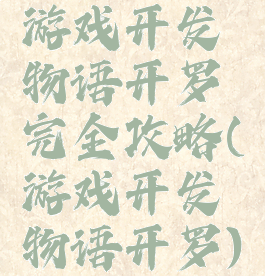 游戏开发
物语开罗
完全攻略(
游戏开发
物语开罗)